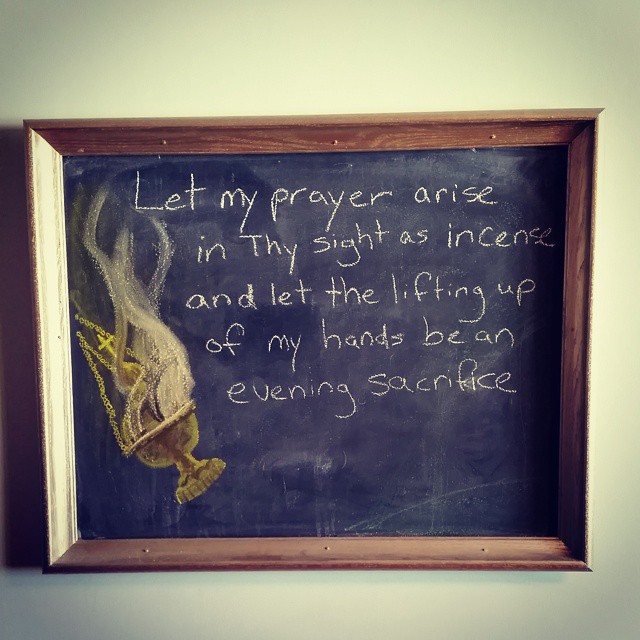 Let my prayer arise
in Thy sight as incense
and let the lifting up
of my hands be an
evening sacrifice